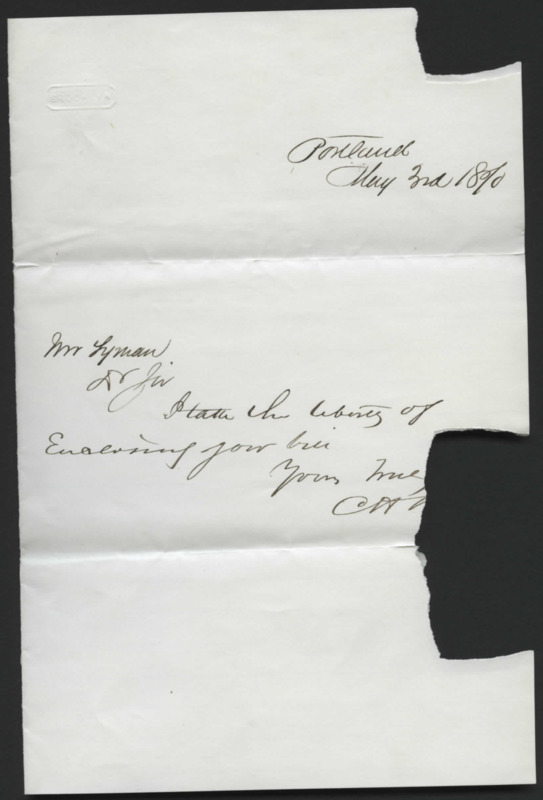 Portland
May 3rd 1870
Mr Lyman
Dr Sir
I take the liberty of
Enclosing your bill
Yours Truly
C H